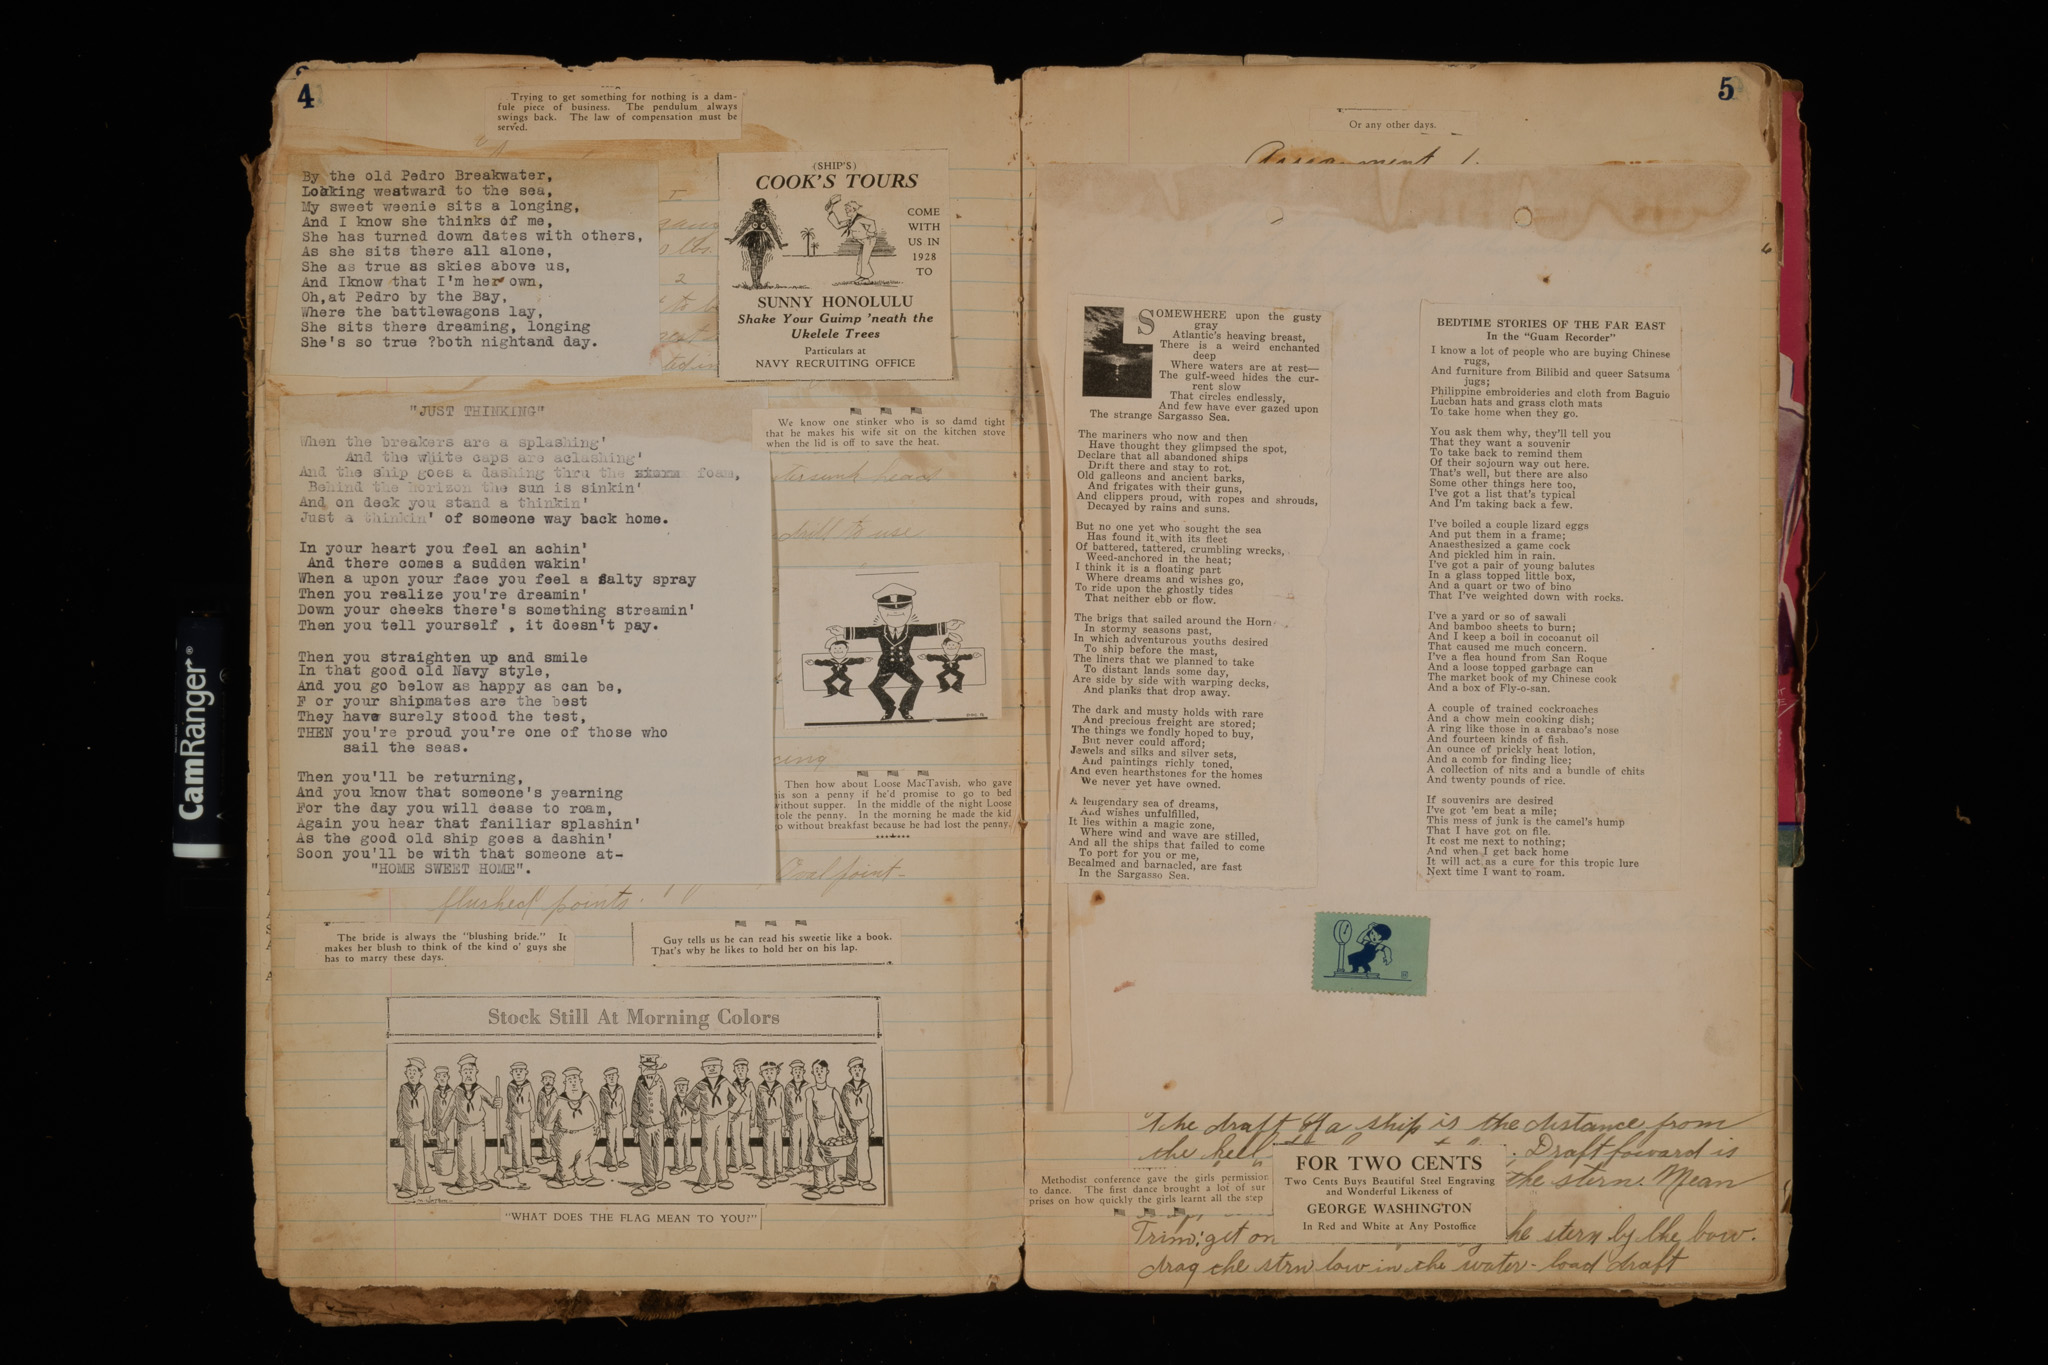 4
Trying to get something for nothing is a dam-
fule piece of business. The pendulum always
swings back. The law of compensation must be
served.
By the old Pedro Breakwater,
Looking westward to the sea,
My sweet weenie sits a longing,
And I know she thinks of me,
She has turned down dates with others,
As she sits there all alone,
She as true as skies above us,
And Iknow that I'm her own,
Oh,at Pedro by the Bay,
Where the battlewagons lay,
She sits there dreaming, longing
She's so true ?both nightand day.
(SHIP'S)
COOK'S TOURS
COME
WITH
US IN
1928
TO
SUNNY HONOLULU
Shake Your Guimp 'neath the
Ukelele Trees
Particulars at
NAVY RECRUITING OFFICE
"JUST THINKING"
When the breakers are a splashing'
And the white caps are aclashing'
And the ship goes a dashing thru the storm foam,
Behind the horizon the sun is sinkin'
And on deck you stand a thinkin'
Just a thinkin' of someone way back home.
In your heart you feel an achin'
And there comes a sudden wakin'
When a upon your face you feel a salty spray
Then you realize you're dreamin'
Down your cheeks there's something streamin'
Then you tell yourself , it doesn't pay.
Then you straighten up and smile
In that good old Navy style,
And you go below as happy as can be,
F or your shipmates are the best
They have surely stood the test,
THEN you're proud you're one of those who
sail the seas.
Then you'll be returning,
And you know that someone's yearning
For the day you will cease to roam,
Again you hear that faniliar splashin'
As the good old ship goes a dashin'
Soon you'll be with that someone at-
"HOME SWEET HOME".
We know one stinker who is so damd tight
that he makes his wife sit on the kitchen stove
when the lid is off to save the heat.
drill to use
Then how about Loose MacTavish, who gave
his son a penny if he'd promise to go to bed
without supper. In the middle of the night Loose
stole the penny. In the morning he made the kid
go without breakfast because he had lost the penny.
Oval point-
flushed points.
The bride is always the "blushing bride." It
makes her blush to think of the kind o' guys she
has to marry these days.
Guy tells us he can read his sweetie like a book.
That's why he likes to hold her on his lap.
Stock Still At Morning Colors
"WHAT DOES THE FLAG MEAN TO YOU?"
5
Or any other days.
Assignment 1.
SOMEWHERE upon the gusty
gray
Atlantic's heaving breast,
There is a weird enchanted
deep
Where waters are at rest—
The gulf-weed hides the cur-
rent slow
That circles endlessly,
And few have ever gazed upon
The strange Sargasso Sea.
The mariners who now and then
Have thought they glimpsed the spot,
Declare that all abandoned ships
Drift there and stay to rot.
Old galleons and ancient barks,
And frigates with their guns,
And clippers proud, with ropes and shrouds,
Decayed by rains and suns.
But no one yet who sought the sea
Has found it with its fleet
Of battered, tattered, crumbling wrecks,
Weed-anchored in the heat;
I think it is a floating part
Where dreams and wishes go,
To ride upon the ghostly tides
That neither ebb or flow.
The brigs that sailed around the Horn
In stormy seasons past,
In which adventurous youths desired
To ship before the mast,
The liners that we planned to take
To distant lands some day,
Are side by side with warping decks,
And planks that drop away.
The dark and musty holds with rare
And precious freight are stored;
The things we fondly hoped to buy,
But never could afford;
Jewels and silks and silver sets,
And paintings richly toned,
And even hearthstones for the homes
We never yet have owned.
A leugendary sea of dreams,
And wishes unfulfilled,
It lies within a magic zone,
Where wind and wave are stilled,
And all the ships that failed to come
To port for you or me,
Becalmed and barnacled, are fast
In the Sargasso Sea.
BEDTIME STORIES OF THE FAR EAST
In the "Guam Recorder"
I know a lot of people who are buying Chinese
rugs,
And furniture from Bilibid and queer Satsuma
jugs;
Philippine embroideries and cloth from Baguio
Lucban hats and grass cloth mats
To take home when they go.
You ask them why, they'll tell you
That they want a souvenir
To take back to remind them
Of their sojourn way out here.
That's well, but there are also
Some other things here too,
I've got a list that's typical
And I'm taking back a few.
I've boiled a couple lizard eggs
And put them in a frame;
Anaesthesized a game cock
And pickled him in rain.
I've got a pair of young balutes
In a glass topped little box,
And a quart or two of bino
That I've weighted down with rocks.
I've a yard or so of sawali
And bamboo sheets to burn;
And I keep a boil in cocoanut oil
That caused me much concern.
I've a flea hound from San Roque
And a loose topped garbage can
The market book of my Chinese cook
And a box of Fly-o-san.
A couple of trained cockroaches
And a chow mein cooking dish;
A ring like those in a carabao's nose
And fourteen kinds of fish.
An ounce of prickly heat lotion,
And a comb for finding lice;
A collection of nits and a bundle of chits
And twenty pounds of rice.
If souvenirs are desired
I've got 'em beat a mile;
This mess of junk is the camel's hump
That I have got on file.
It cost me next to nothing;
And when I get back home
It will act as a cure for this tropic lure
Next time I want to roam.
The draft of a ship is the distance from
the keel Draft foward is
the stern. Mean
Methodist conference gave the girls permission
to dance. The first dance brought a lot of sur
prises on how quickly the girls learnt all the step
FOR TWO CENTS
Two Cents Buys Beautiful Steel Engraving
and Wonderful Likeness of
GEORGE WASHINGTON
In Red and White at Any Postoffice
Trim: get on the stern by the bow.
drag the strn low in the water - load draft
CamRanger®